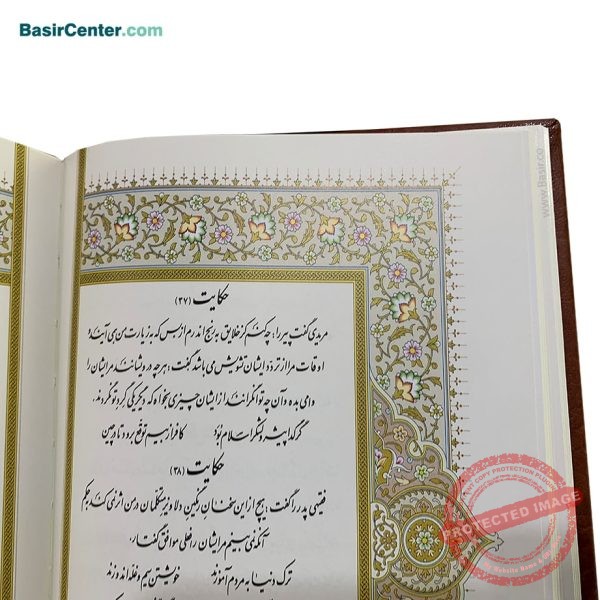 BasirCenter.com
www.Basir.co
حکایت (۳۷)
مریدی گفت پیر را: چه کنم کز خلایق به رنج اندرم از بس که به زیارت من همی آیند و
اوقات مرا از تردد ایشان تشویش می باشد گفت: هر چه درویشانند مر ایشان را
وامی بده و آن چه توانگرانند از ایشان چیزی بخواه که دیگر یکی گرد تو نگردند.
گر گدا پیشرو لشکر اسلام بود کافر از بیم توقع برود تا در چین
حکایت (۳۸)
فقیهی پدر را گفت: هیچ از این سخنان رنگین دلاویز متکلمان در من اثر نمی کند به حکم
آنکه نمی بینم مر ایشان را فعلی موافق گفتار.
ترک دنیا به مردم آموزند خویشتن سیم و غله اندوزند
PROTECTED IMAGE